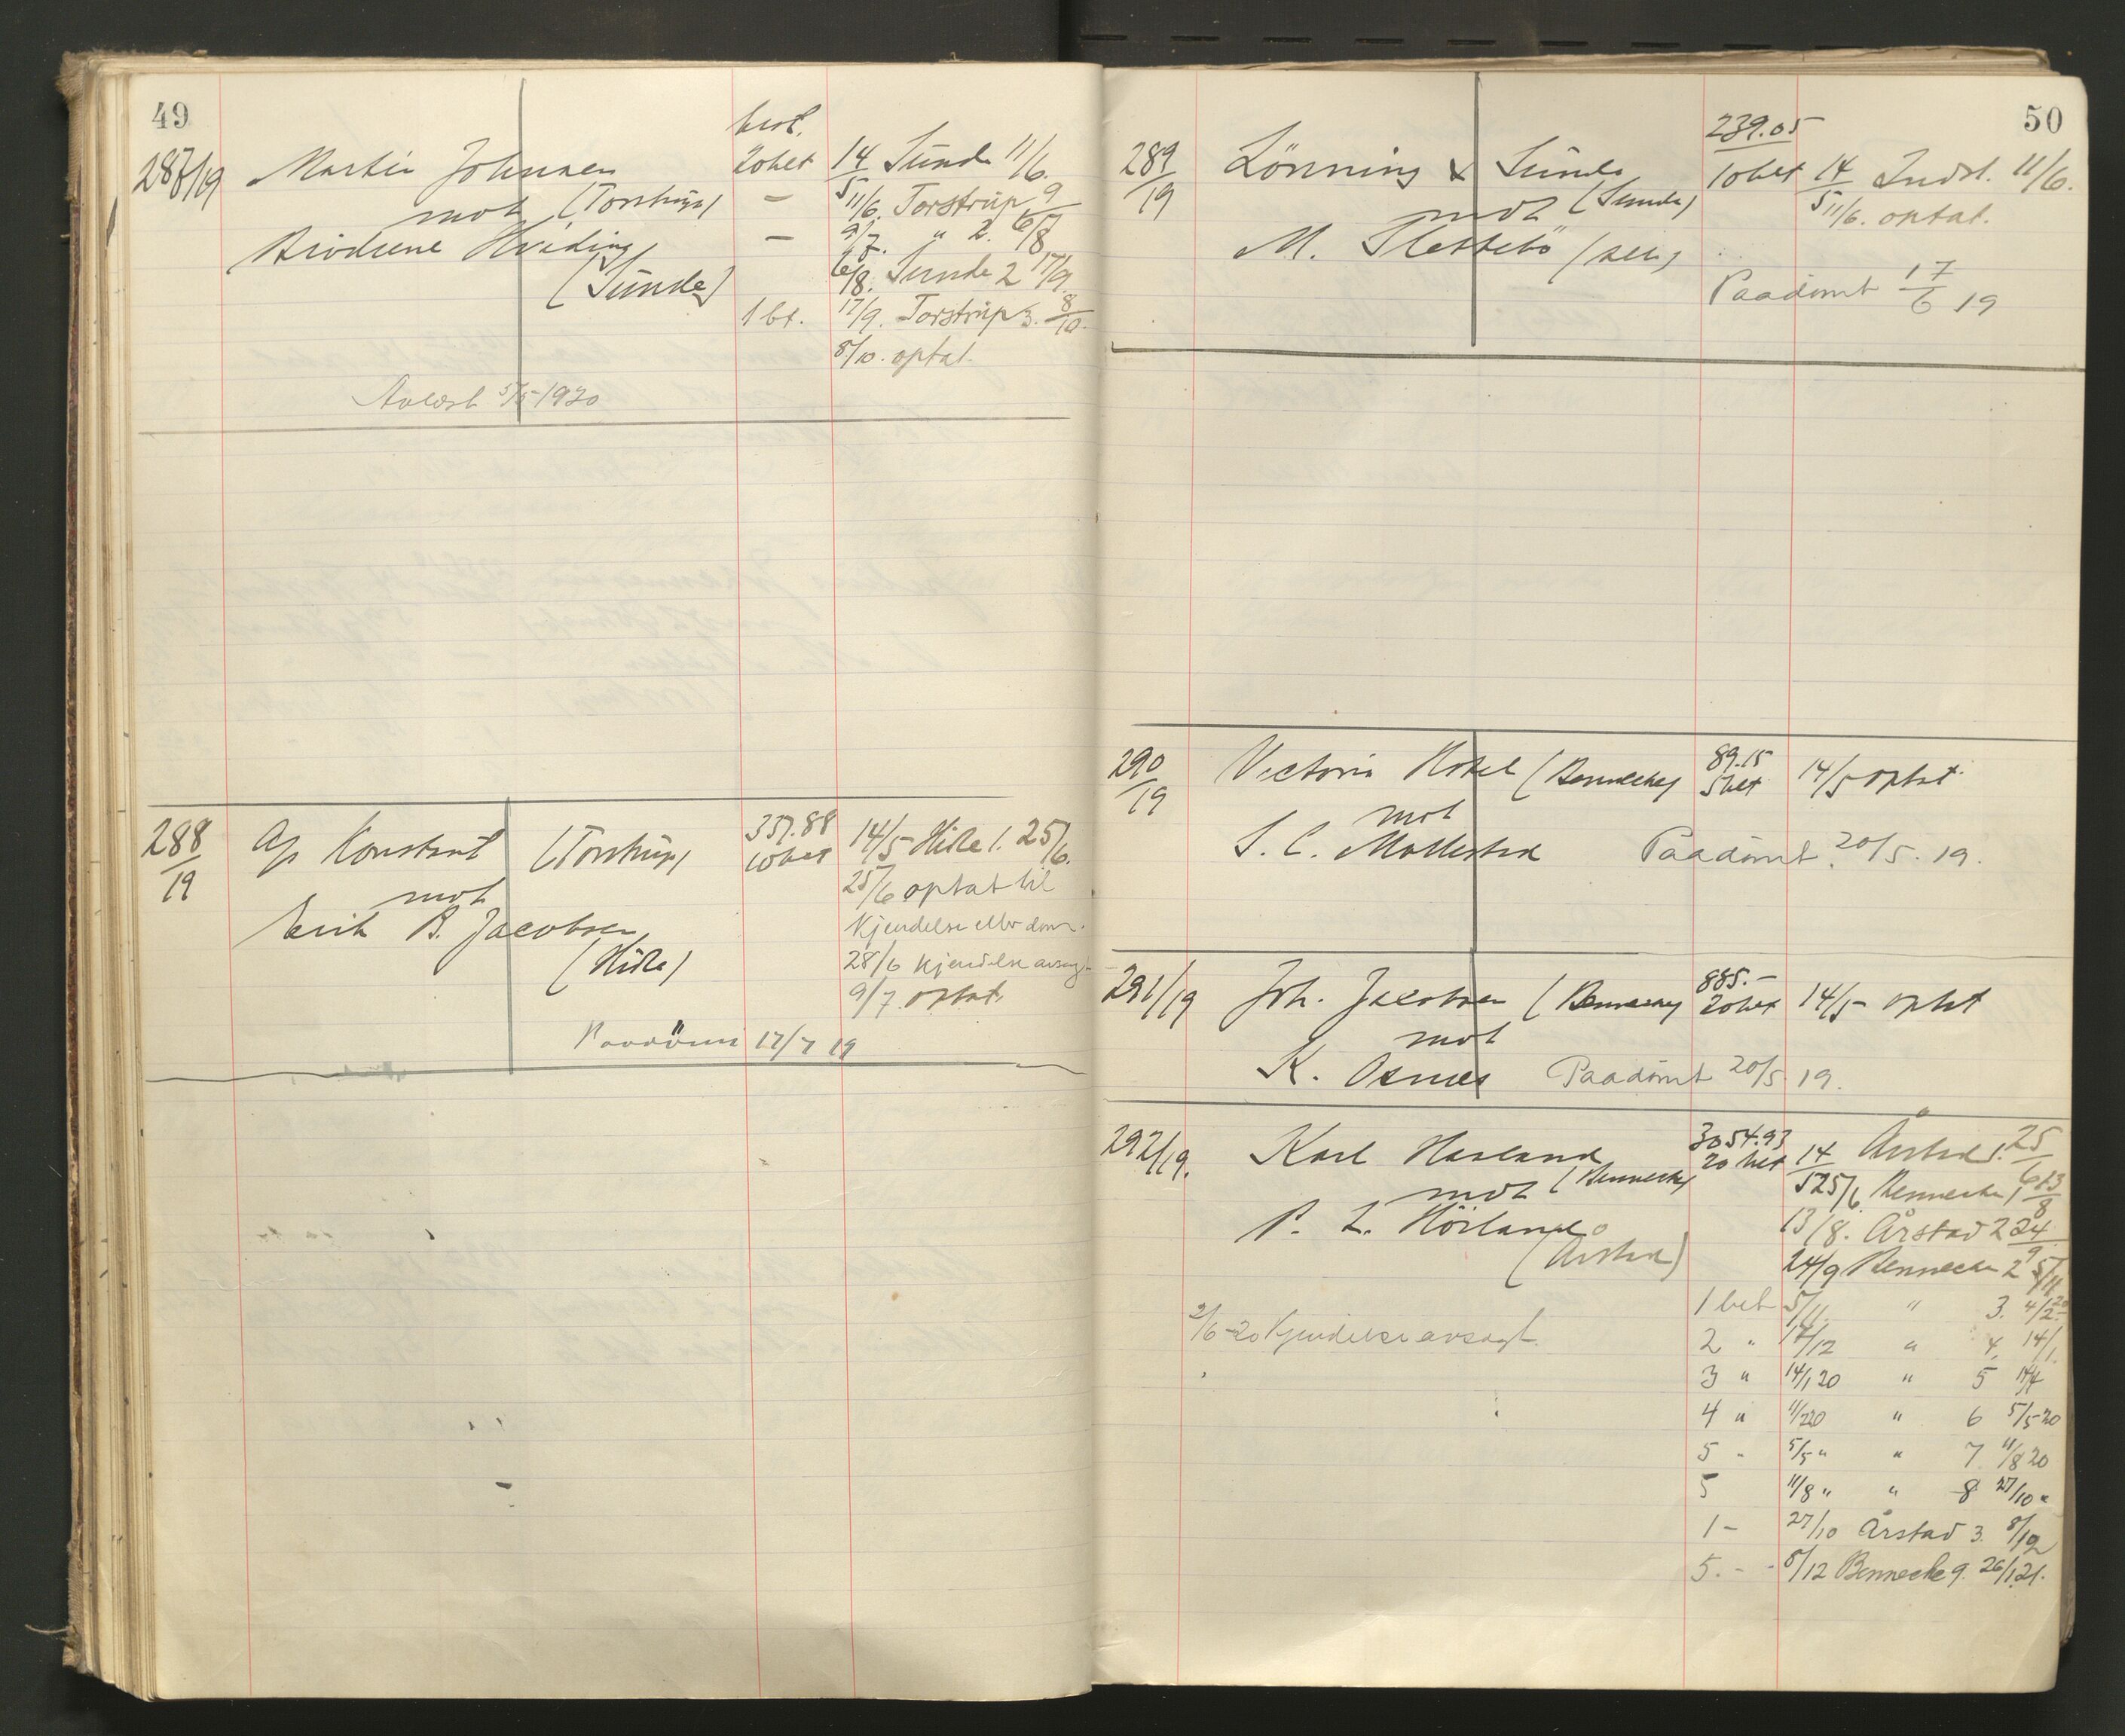 49
287/19 Martin Johnsen 20 bet 14/5 Sunde 11/6.
mot (Torstrup) – 11/6. Torstrup 9/7
Hviding – 9/7. " 2. 6/8
(Sunde) 6/8. Sunde 2 17/9.
1 bt. 17/9. Torstrup 3. 8/10.
8/10. optat.
5/5-1920
288/19 A/s Konstant (Torstrup) 357.88 10 bet 14/5 Hille 1. 25/6.
mot 25/6 optat til
Erik B. Jacobsen Kjendelse eller dom.
(Hille) 28/6 Kjendelse avsagt
9/7. optat.
Paadömt 17/7 19
50
239.05
289/19 Lönning & Sunde 10 bet 14/5 Indst. 11/6.
mot (Sunde) 11/6. optat.
M. Slettebö (selv)
Paadömt 17/6 19
290/19 Victoria Hotel (Bennecke) 89.15 5 bet 14/5 optat.
mot
S. C. Mollestad Paadömt 20/5. 19.
291/19 Joh. Jacobsen (Bennecke) 885.– 20 bet 14/5 optat
mot
K. Osnes Paadömt 20/5 19.
292/19. Karl Hasland 3054.93 20 bet 14/5 Årstad 1. 25/6
mot (Bennecke) 25/6 Bennecke 1 13/8
P. L. Höiland 13/8. Årstad 2 24/9
(Årstad) 24/9 Bennecke 2 5/11
1 bet 5/11. " 3.
2/6-20 Kjendelse avsagt. 2 " 17/12 " 4. 14/1.
3 " 14/1 20 " 5
4 " 11/2 20 " 6 5/5-20
5 - 5/5 " " 7 11/8 20
5 11/8 " " 8 27/10 "
1 - 27/10 Årstad 3. 8/12
5. - - 8/12 Bennecke 9. 26/1.21.